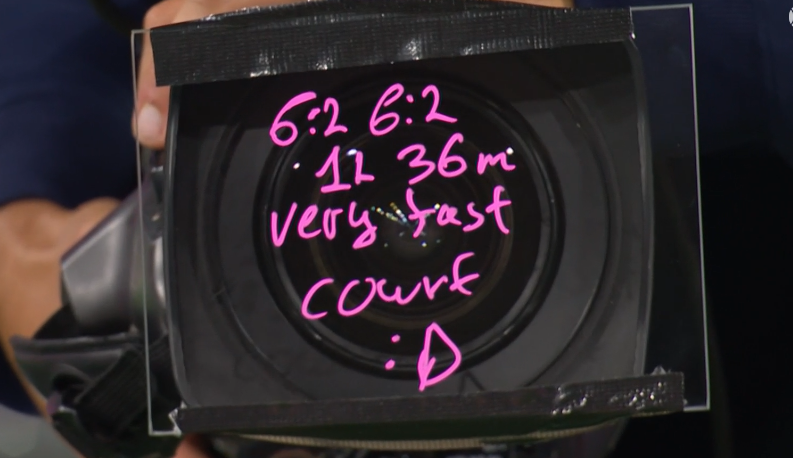 6:2 6:2
1h 36m
very fast
court
:D